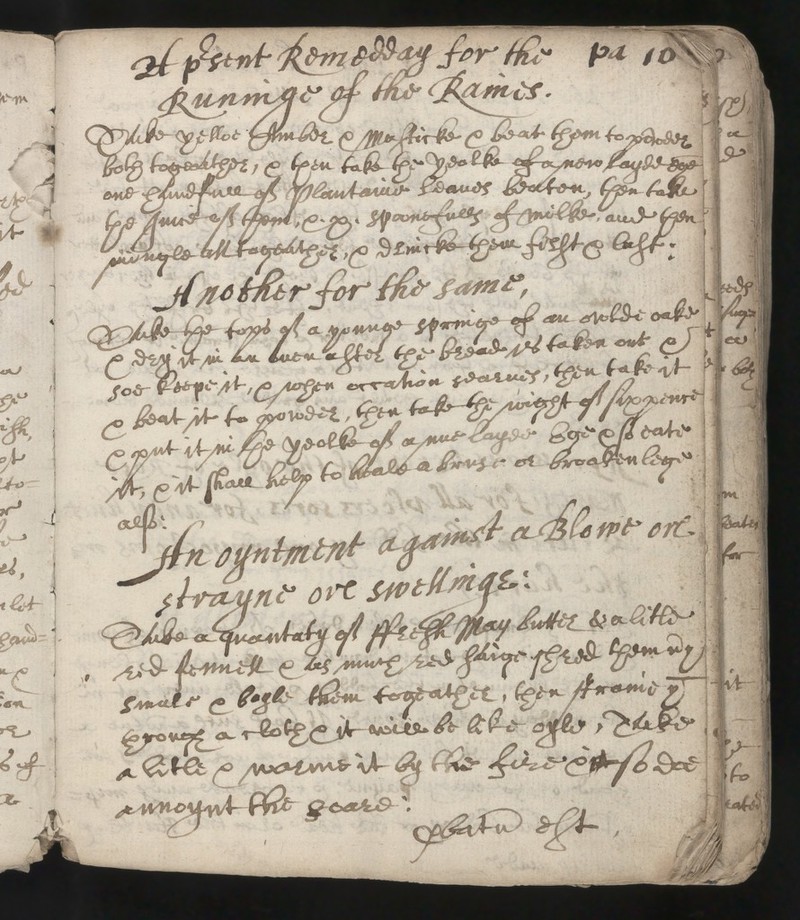 A p'sent Remedday for the pa 10
Runinge of the Raines.
Take yelloe Amber & Masticke & beat them to powder
both togeather, & then take the yeolke of a new layde ege
one handfull of Plantaine leaues beaten, then take
the Juice of them, & spoonefulls of milke, and then
mingle all togeather, & drincke them first & last:
Another for the same,
Take the tops of a younge springe of an owlde oake
& dry it in an ouen after the bread is taken out &
soe keepe it, & when occation searues, then take it
& beat it to powder, then take the wight of sixpence
& put it in the yeolke of a nue layde Ege & so eate
it, & it shall help to heale a bruse or broaken lege
also:
An oyntment against a Blowe ore
strayne ore swellinge:
Take a quantaty of ffresh May butter & a litle
red fennell & as much red saige shred them
smale & boyle them togeather, then straine
through a cloth & it will be like oyle, Take
a litle & warme it by the fire & so doe
annoynt the soare:
pbatu est